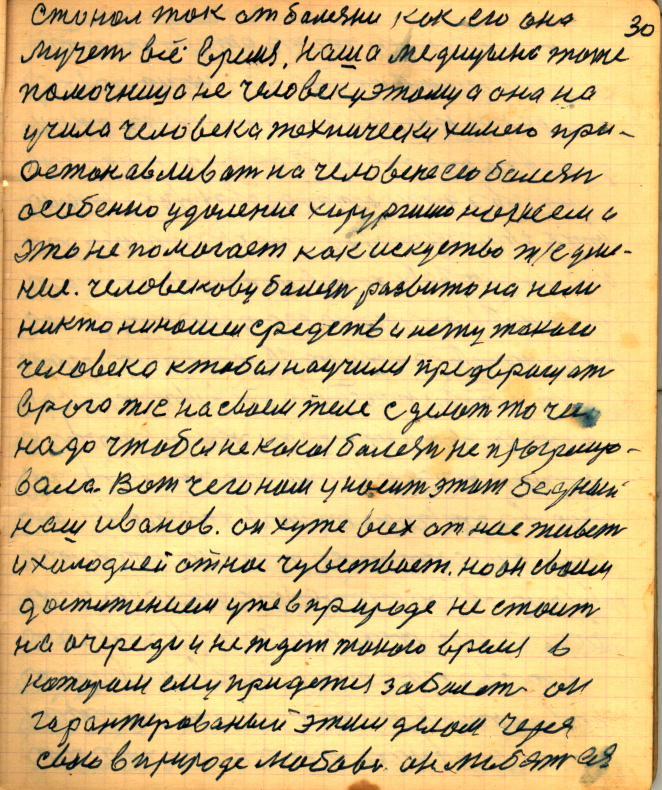 30
стонал так от балезни как его она
мучет всё время, Наша медицина тоже
помочница не человеку этому а она на
учила человека технически химево при-
останавливат на человеке его балезн
особенно удоление хирургишо ножием и
это не помогает как искуство тяжеле-
ние. человекову балезн развито на нем
никто ниношел средств и нету такого
человека ктобы научился предвращат
врага т/е на своем теле сделат то чего
надо чтобы не какая балезн не прогресиро-
вала. Вот чего нам уносит этат бедный
наш иванов. он хуже всех от нас живет
и халодней от нас чувствает. но он своим
достижением уже в природе не стоит
на очереди и не ждет такого время в
котором ему придется заболет он
гарантированый этим делом через
свою в природе любовь. он любятся